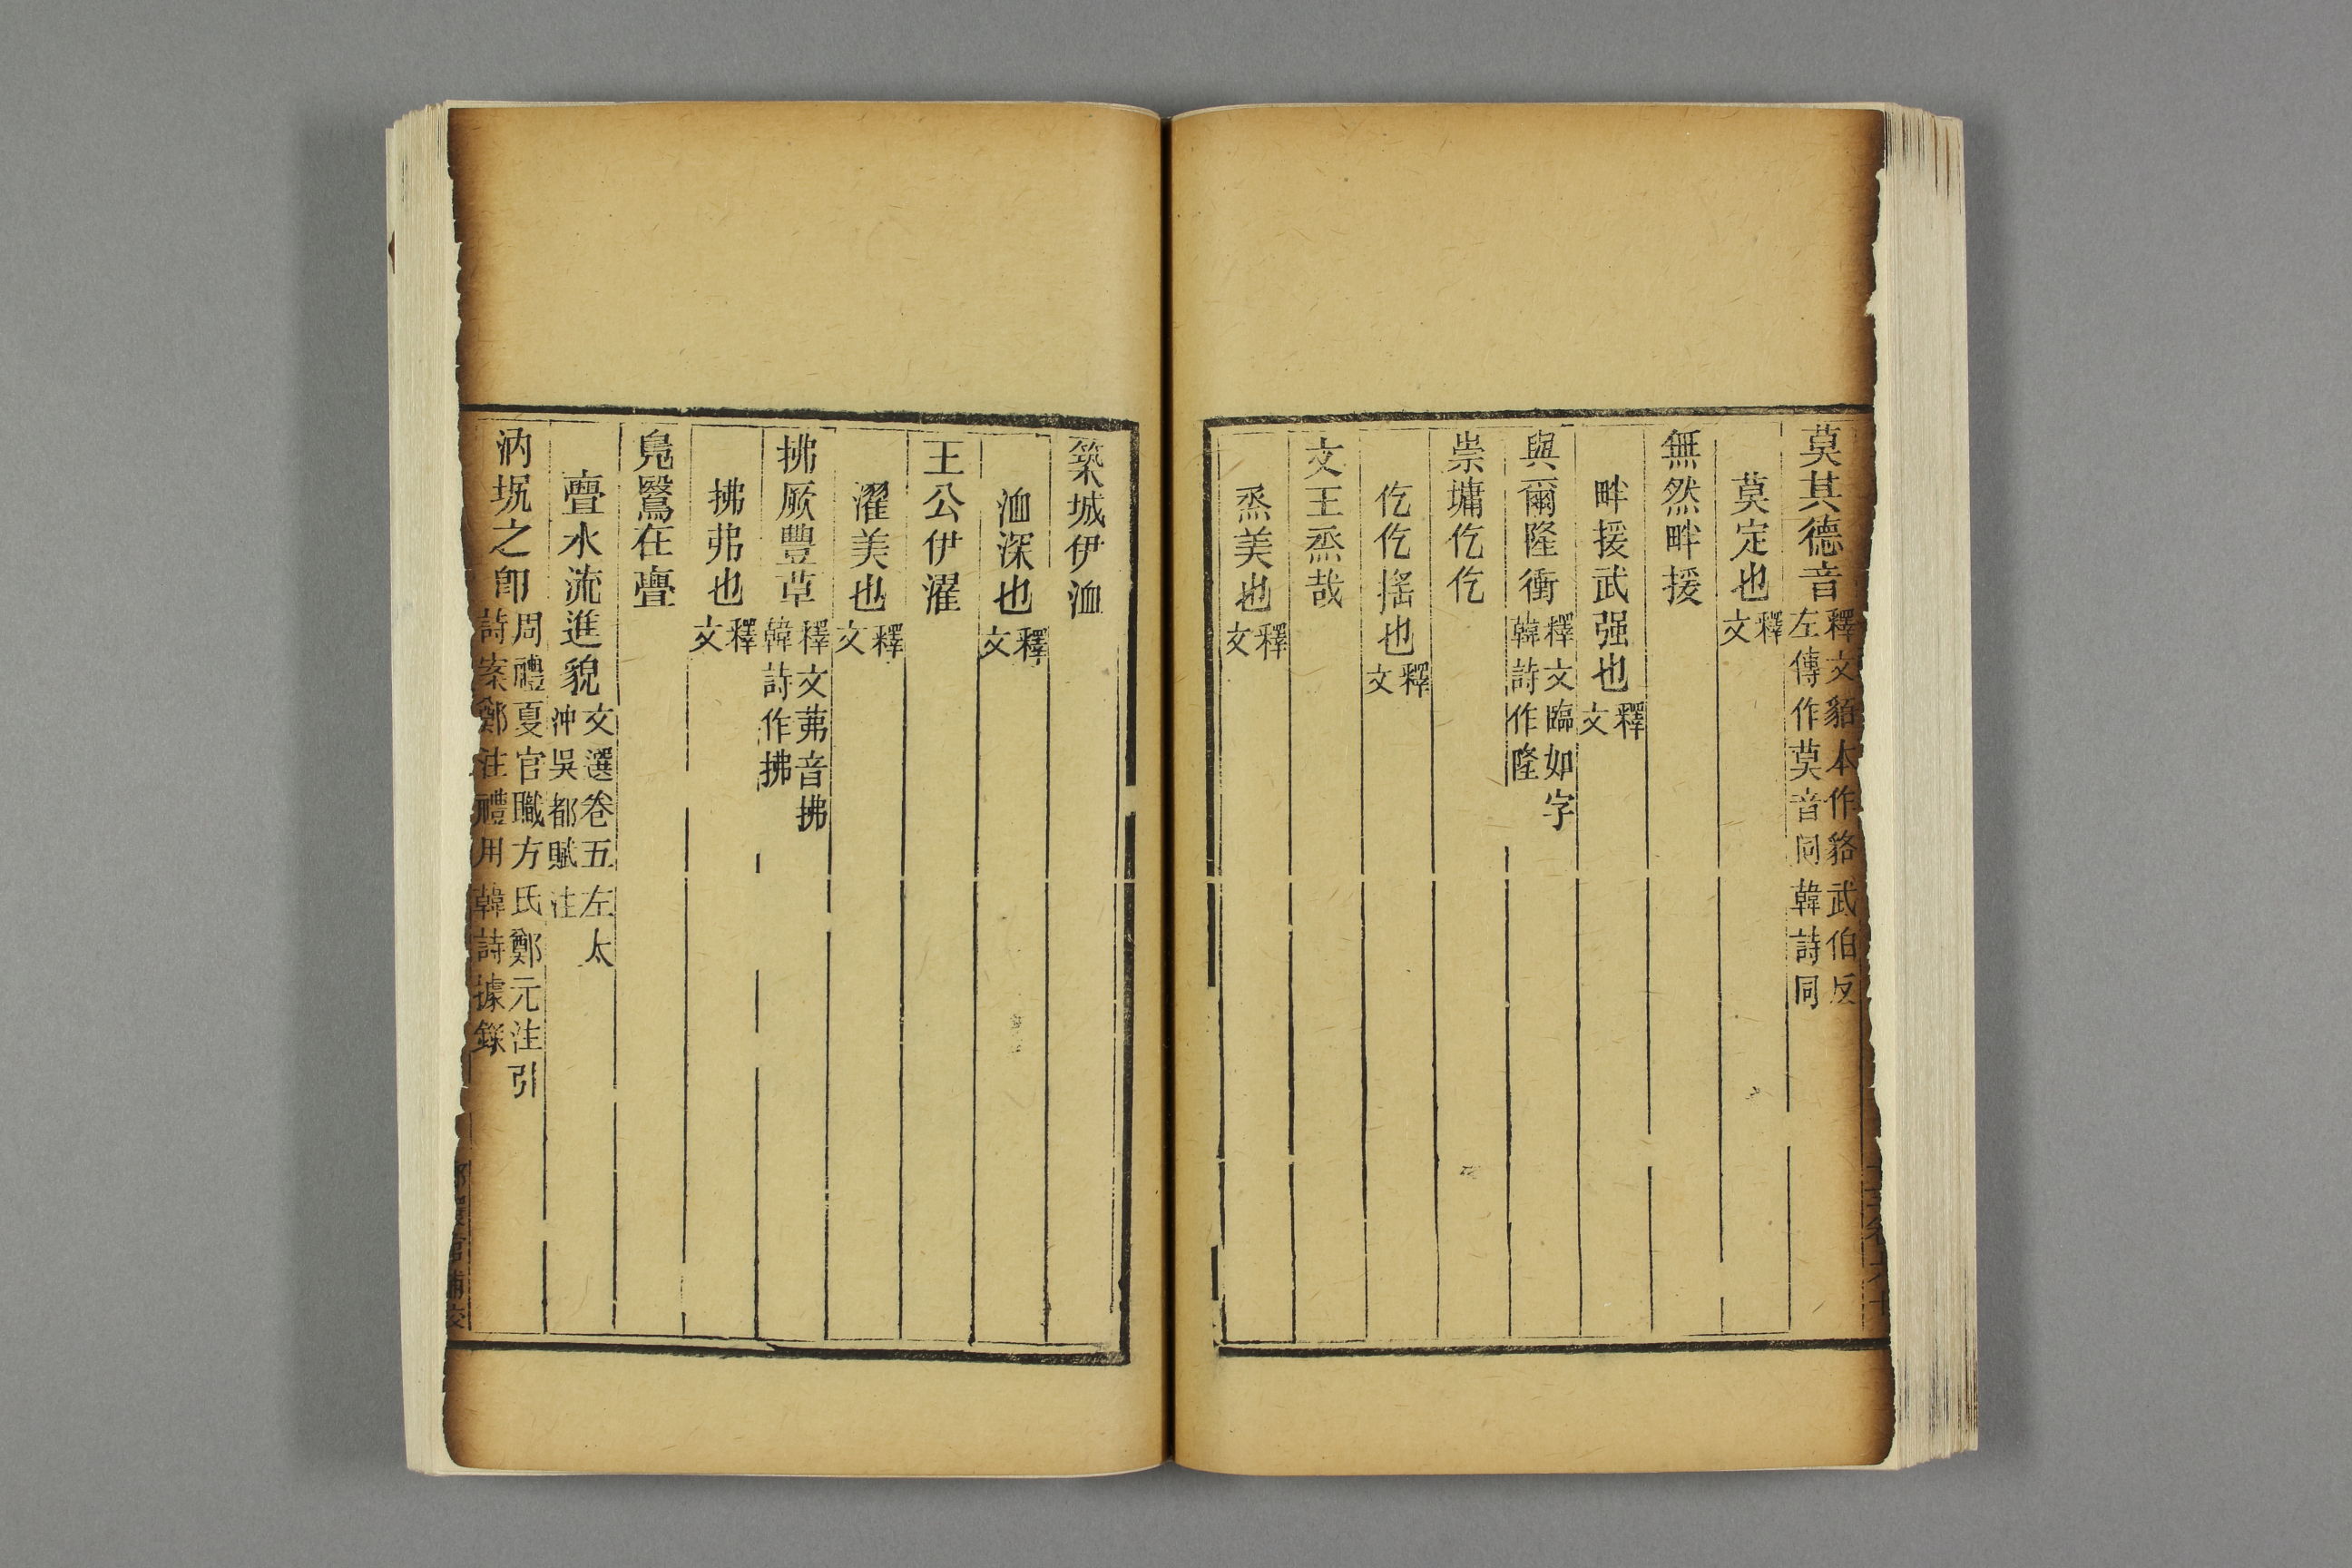 莫其德音釋文貊本作貉武伯反左傳作莫音同韓詩同
莫定也釋文
無然畔援
畔援武强也釋文
與爾隆衝釋文臨如字韓詩作隆
崇墉仡仡
仡仡搖也釋文
文王烝哉
烝美也釋文
築城伊洫
洫深也釋文
王公伊濯
濯美也釋文
拂厥豐草釋文茀音拂韓詩作拂
拂弗也釋文
鳧鷖在亹
亹水流進貌文選卷五左太沖吳都賦注
汭坭之卽周禮夏官職方氏鄭元注引詩案鄭注禮用韓詩據錄
補校